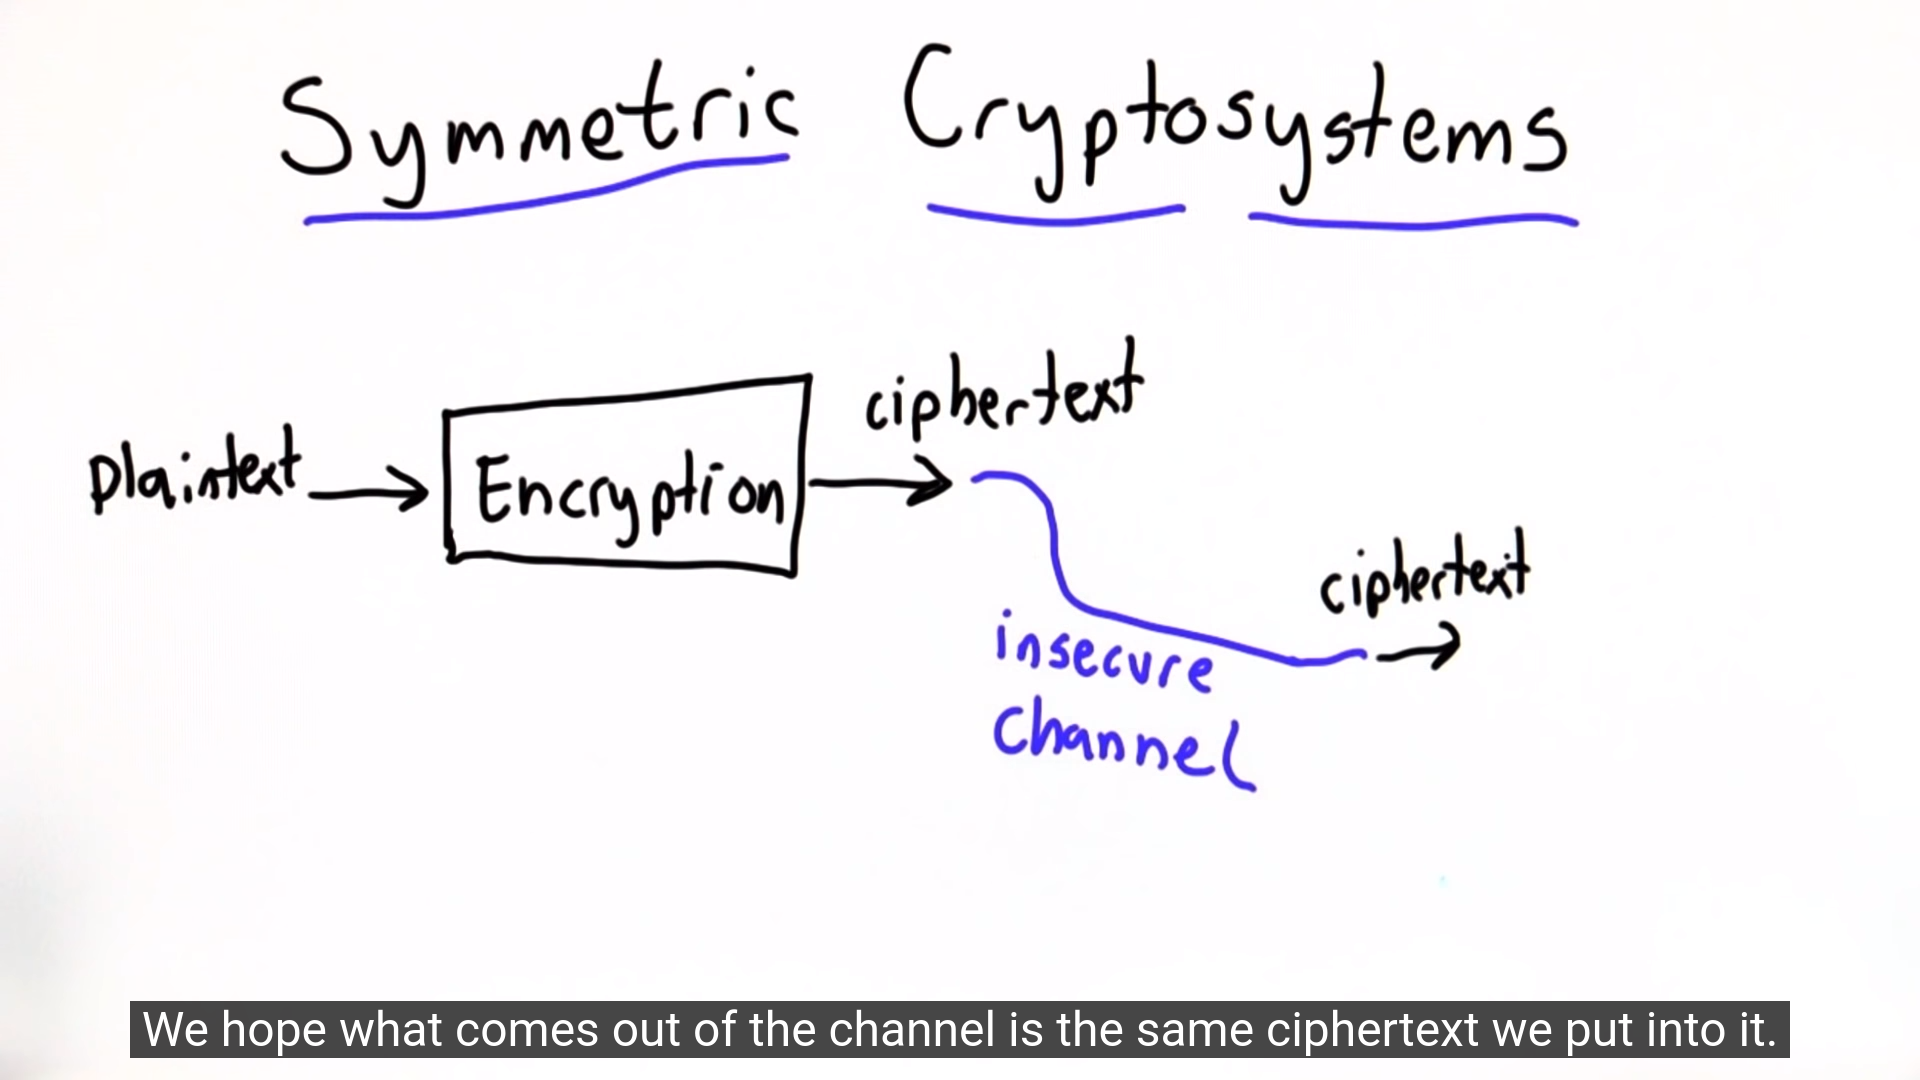 Symmetric Cryptosystems
ciphertext
Plaintext
Encryption
ciphertext
insecure
channel
We hope what comes out of the channel is the same ciphertext we put into it.